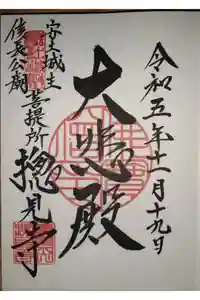 令和五年十一月十九日
大悲殿
安土城主
信長公御菩提所
摠見寺